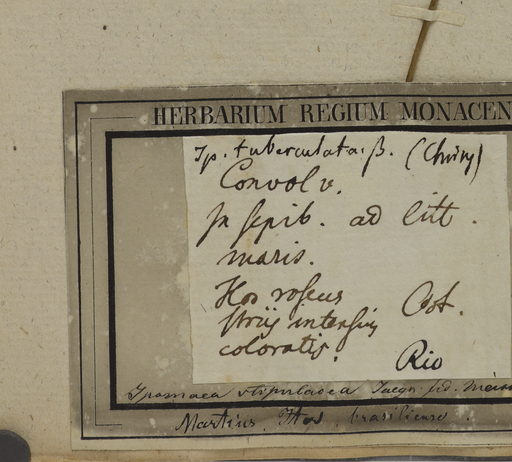 HERBARIUM REGIUM MONACEN
Ip. tuberculata β. (Choisy)
Convolv.
In sepib. ad litt.
maris.
Flos roseus Oct.
striis intensius
coloratis. Rio
Ipomaea stipulacea Jacq. fid. Meisn
Martius. Flos brasiliensis.